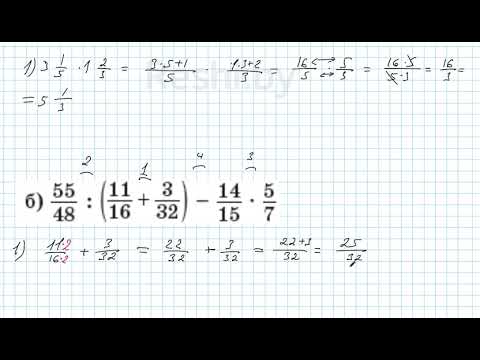 1) 3 1/5 · 1 2/3 = 3·5+1/5 · 1·3+2/3 = 16/5 · 5/3 = 16·5/5·3 = 16/3 =
= 5 1/3
2 1 4 3
б) 55/48 : (11/16 + 3/32) − 14/15 · 5/7
1) 11·2/16·2 + 3/32 = 22/32 + 3/32 = 22+3/32 = 25/32